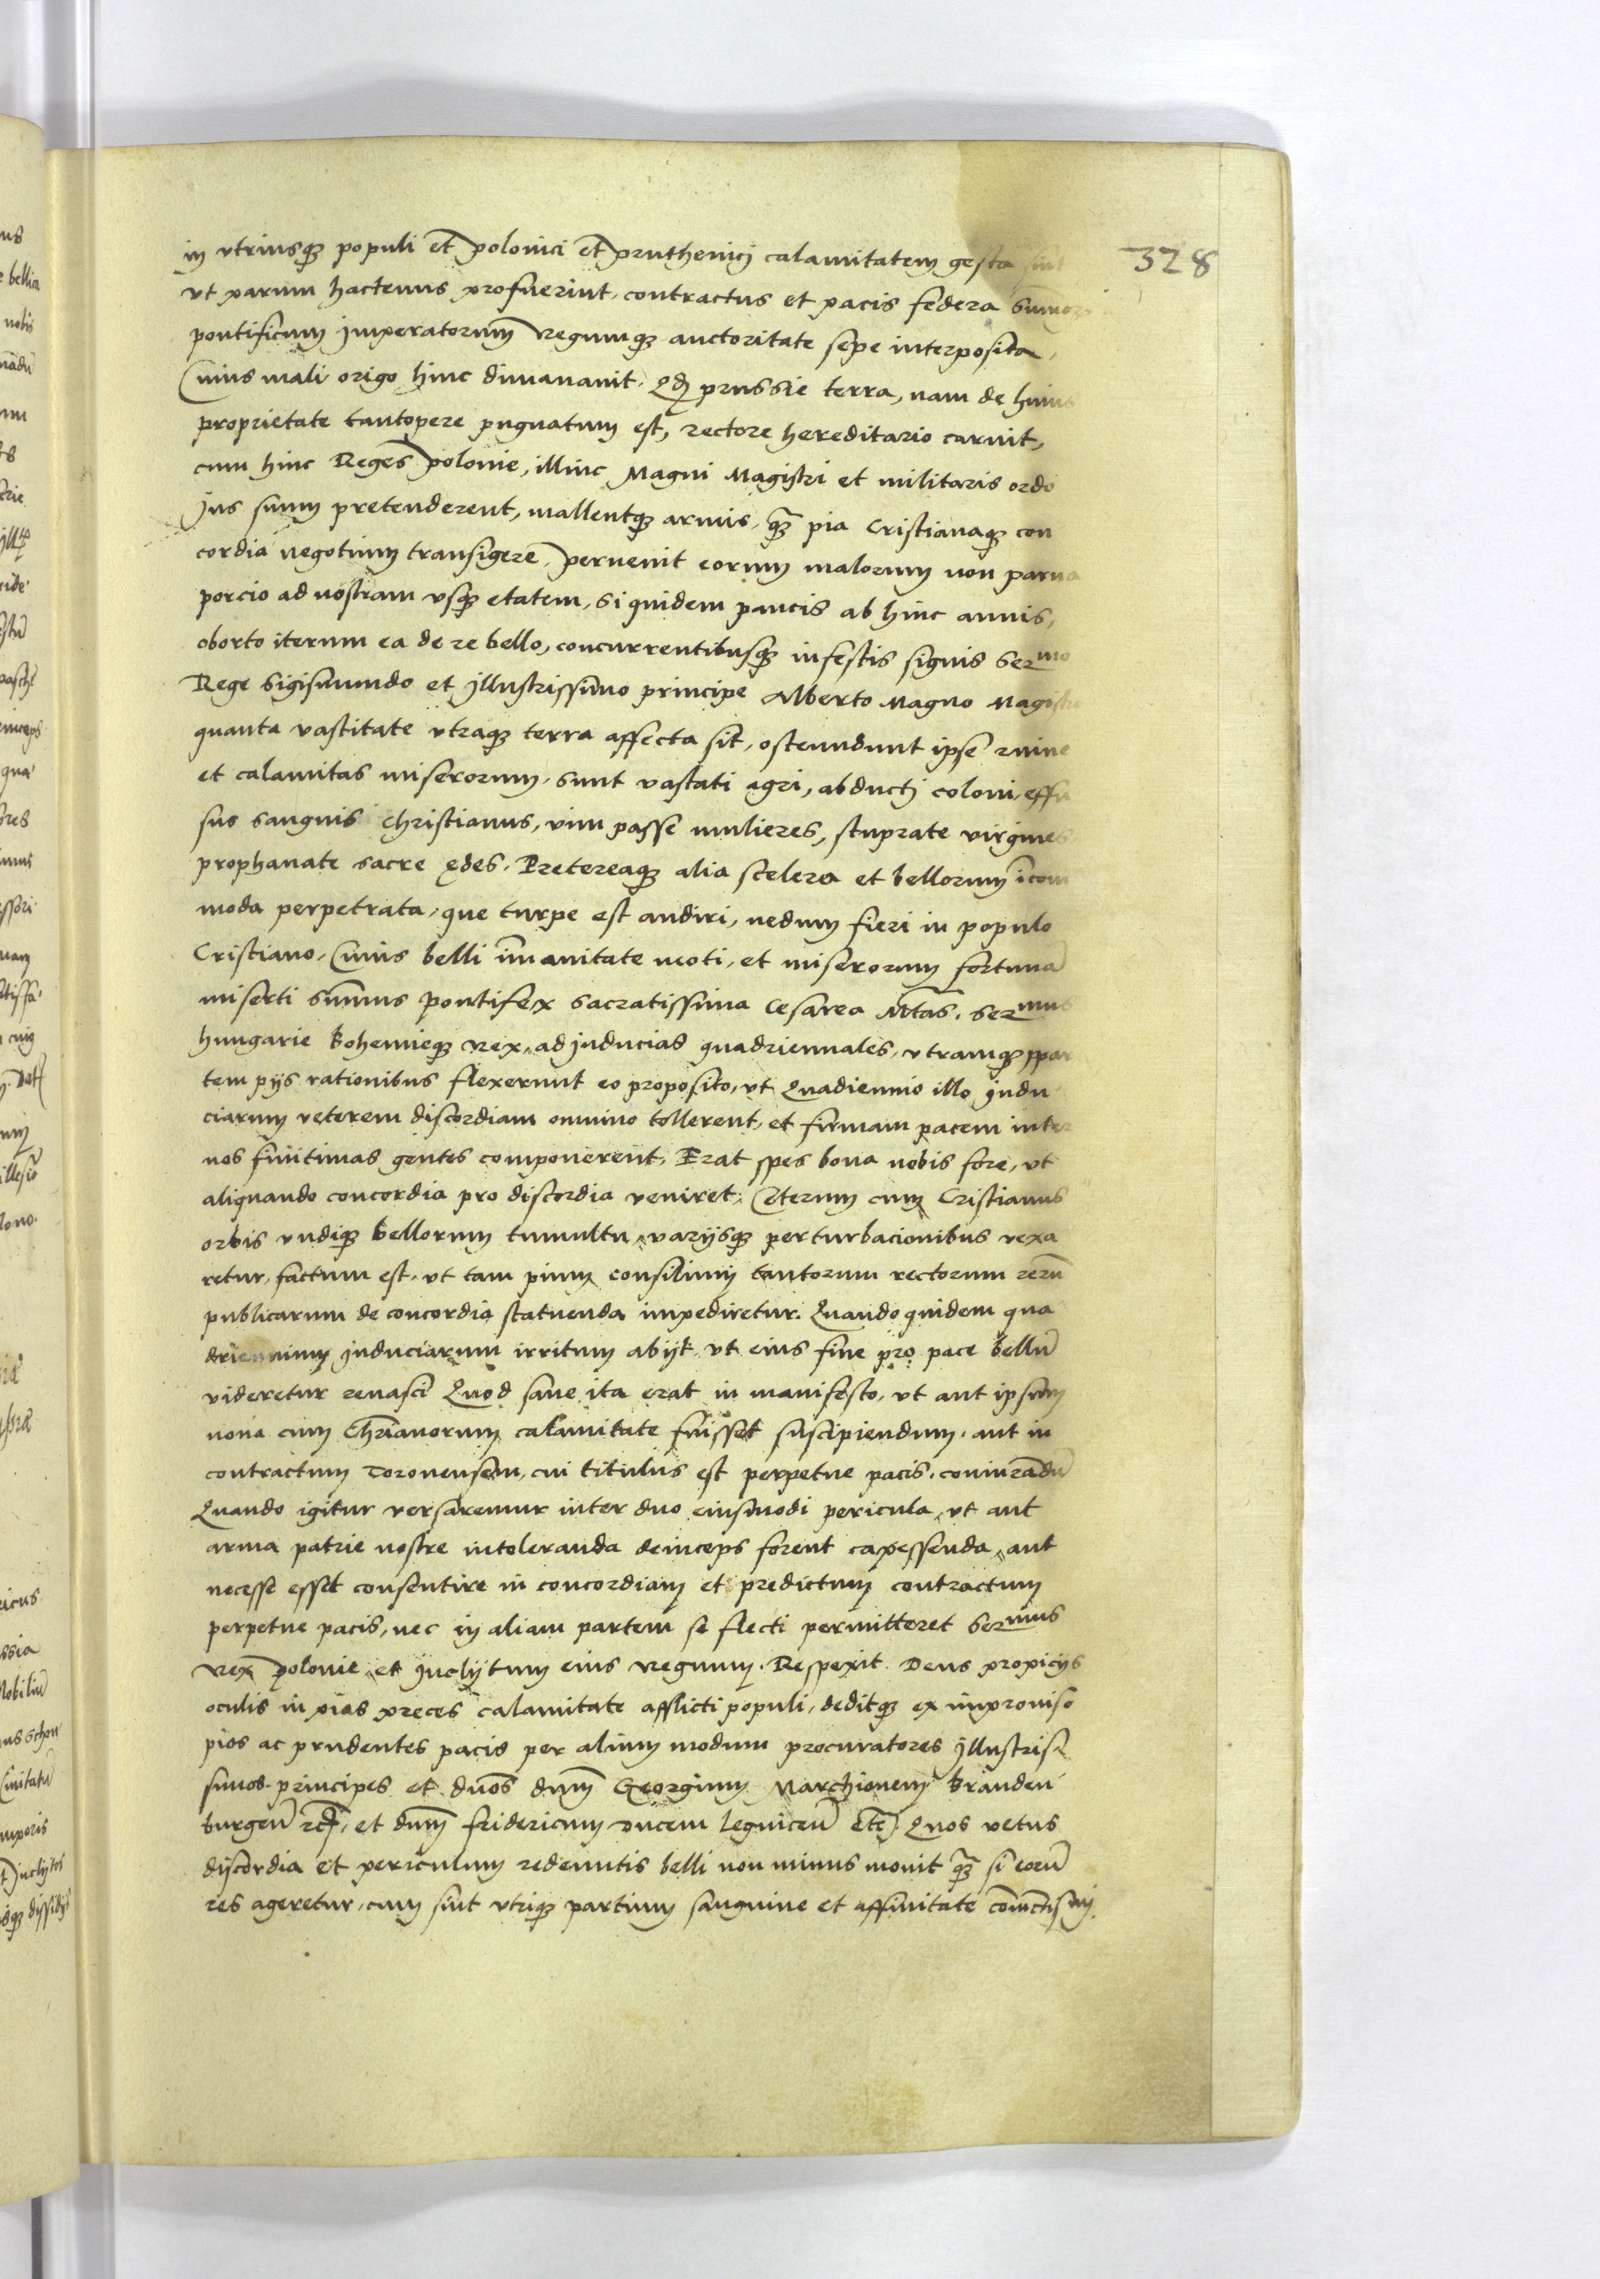 328
in vtriusq populi et polonici et pruthenici calamitatem gesta sint
vt parum hactenus profuerint, contractus et pacis federa
pontificum Imperatorum Regumq auctoritate sepe interposita,
Cuius mali origo hinc dimanauit, Qd prussie terra, nam de huius
proprietate tantopere pugnatum est, rectore hereditario caruit,
cum hinc Reges polonie, illinc Magni Magistri et militaris ordo
Jus suum pretenderent, mallentq armis, q̃ pia Cristianaq con
cordia negotium transigere, peruenit eorum malorum non parua
porcio ad nostram vsq etatem, Siquidem paucis ab hinc annis,
oborto iterum ea de re bello, concurrentibusq infestis signis Sermo
Rege Sigismundo et Illustrissimo principe Alberto Magno Magistro
quanta vastitate vtraq terra affecta sit, ostenndunt ipse ruine
et calamitas miserorum, Sunt vastati agri, abducti coloni, effu
sus sanguis Christianus, vim passe mulieres, stuprate virgines
prophanate sacre ędes, Pretereaq alia scelera et bellorum icom
moda perpetrata, que turpe est audiri, nedum fieri in populo
Cristiano, Cuius belli im̃anitate moti, et miserorum fortunã
miserti Sum̃us pontifex Sacratissima Cesarea Mtas, Sermus
hungarie bohemieq Rex, ad Inducias quadriennales, vtramq ppar
tem pijs rationibus flexerunt eo proposito, vt Quadiennio illo Indu
ciarum veterem discordiam omnino tollerent, et firmam pacem inter
nos finitimas gentes componerent, Erat spes bona nobis fore, vt
aliquando concordia pro discordia veniret, Ceterum cum Cristianus
orbis vndiq bellorum tumultu, varijsq perturbacionibus vexa
retur, factum est, vt tam pium consilium tantorum rectorum rerũ
publicarum de concordia statuenda impediretur. Quandoquidem qua
driennium Induciarum irritum abijt, vt eius fine pro pace bellũ
videretur renasci Quod sane ita erat in manifesto, vt aut ipsum
noua cum Chrianorum calamitate fuisset suscipiendum, aut in
contractum Toronensem, cui titulus est perpetue pacis, coniurandũ
Quando igitur versaremur inter duo eiusmodi pericula, vt aut
arma patrie nostre intoleranda deinceps forent capessenda, aut
necesse esset consentire in concordiam et predictum contractum
perpetue pacis, nec in aliam partem se flecti permitteret Sermus
Rex polonie, et Inclijtum eius Regnum. Respexit Deus propicijs
oculis in pias preces calamitate afflicti populi, deditq ex improuiso
pios ac prudentes pacis per alium modum procuratores Illustris
simos principes et dños dñm Georgium Marchionem Branden
burgeñ rc, et dñm fridericum Ducem legniceñ etc Quos vetus
discordia et periculum redeuntis belli non minus mouit q̃ si eorũ
res ageretur, cum sint vtriq partium sanguine et affinitate